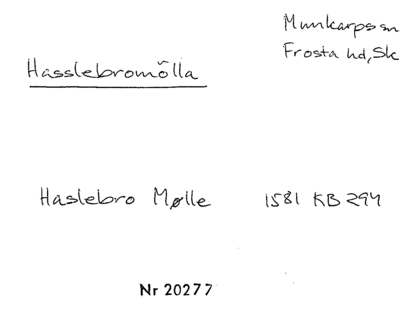 Munkarps sn
Frosta hd, Sk
Hasslebromölla
Haslebro Mølle 1581 KB 294
Nr 20277